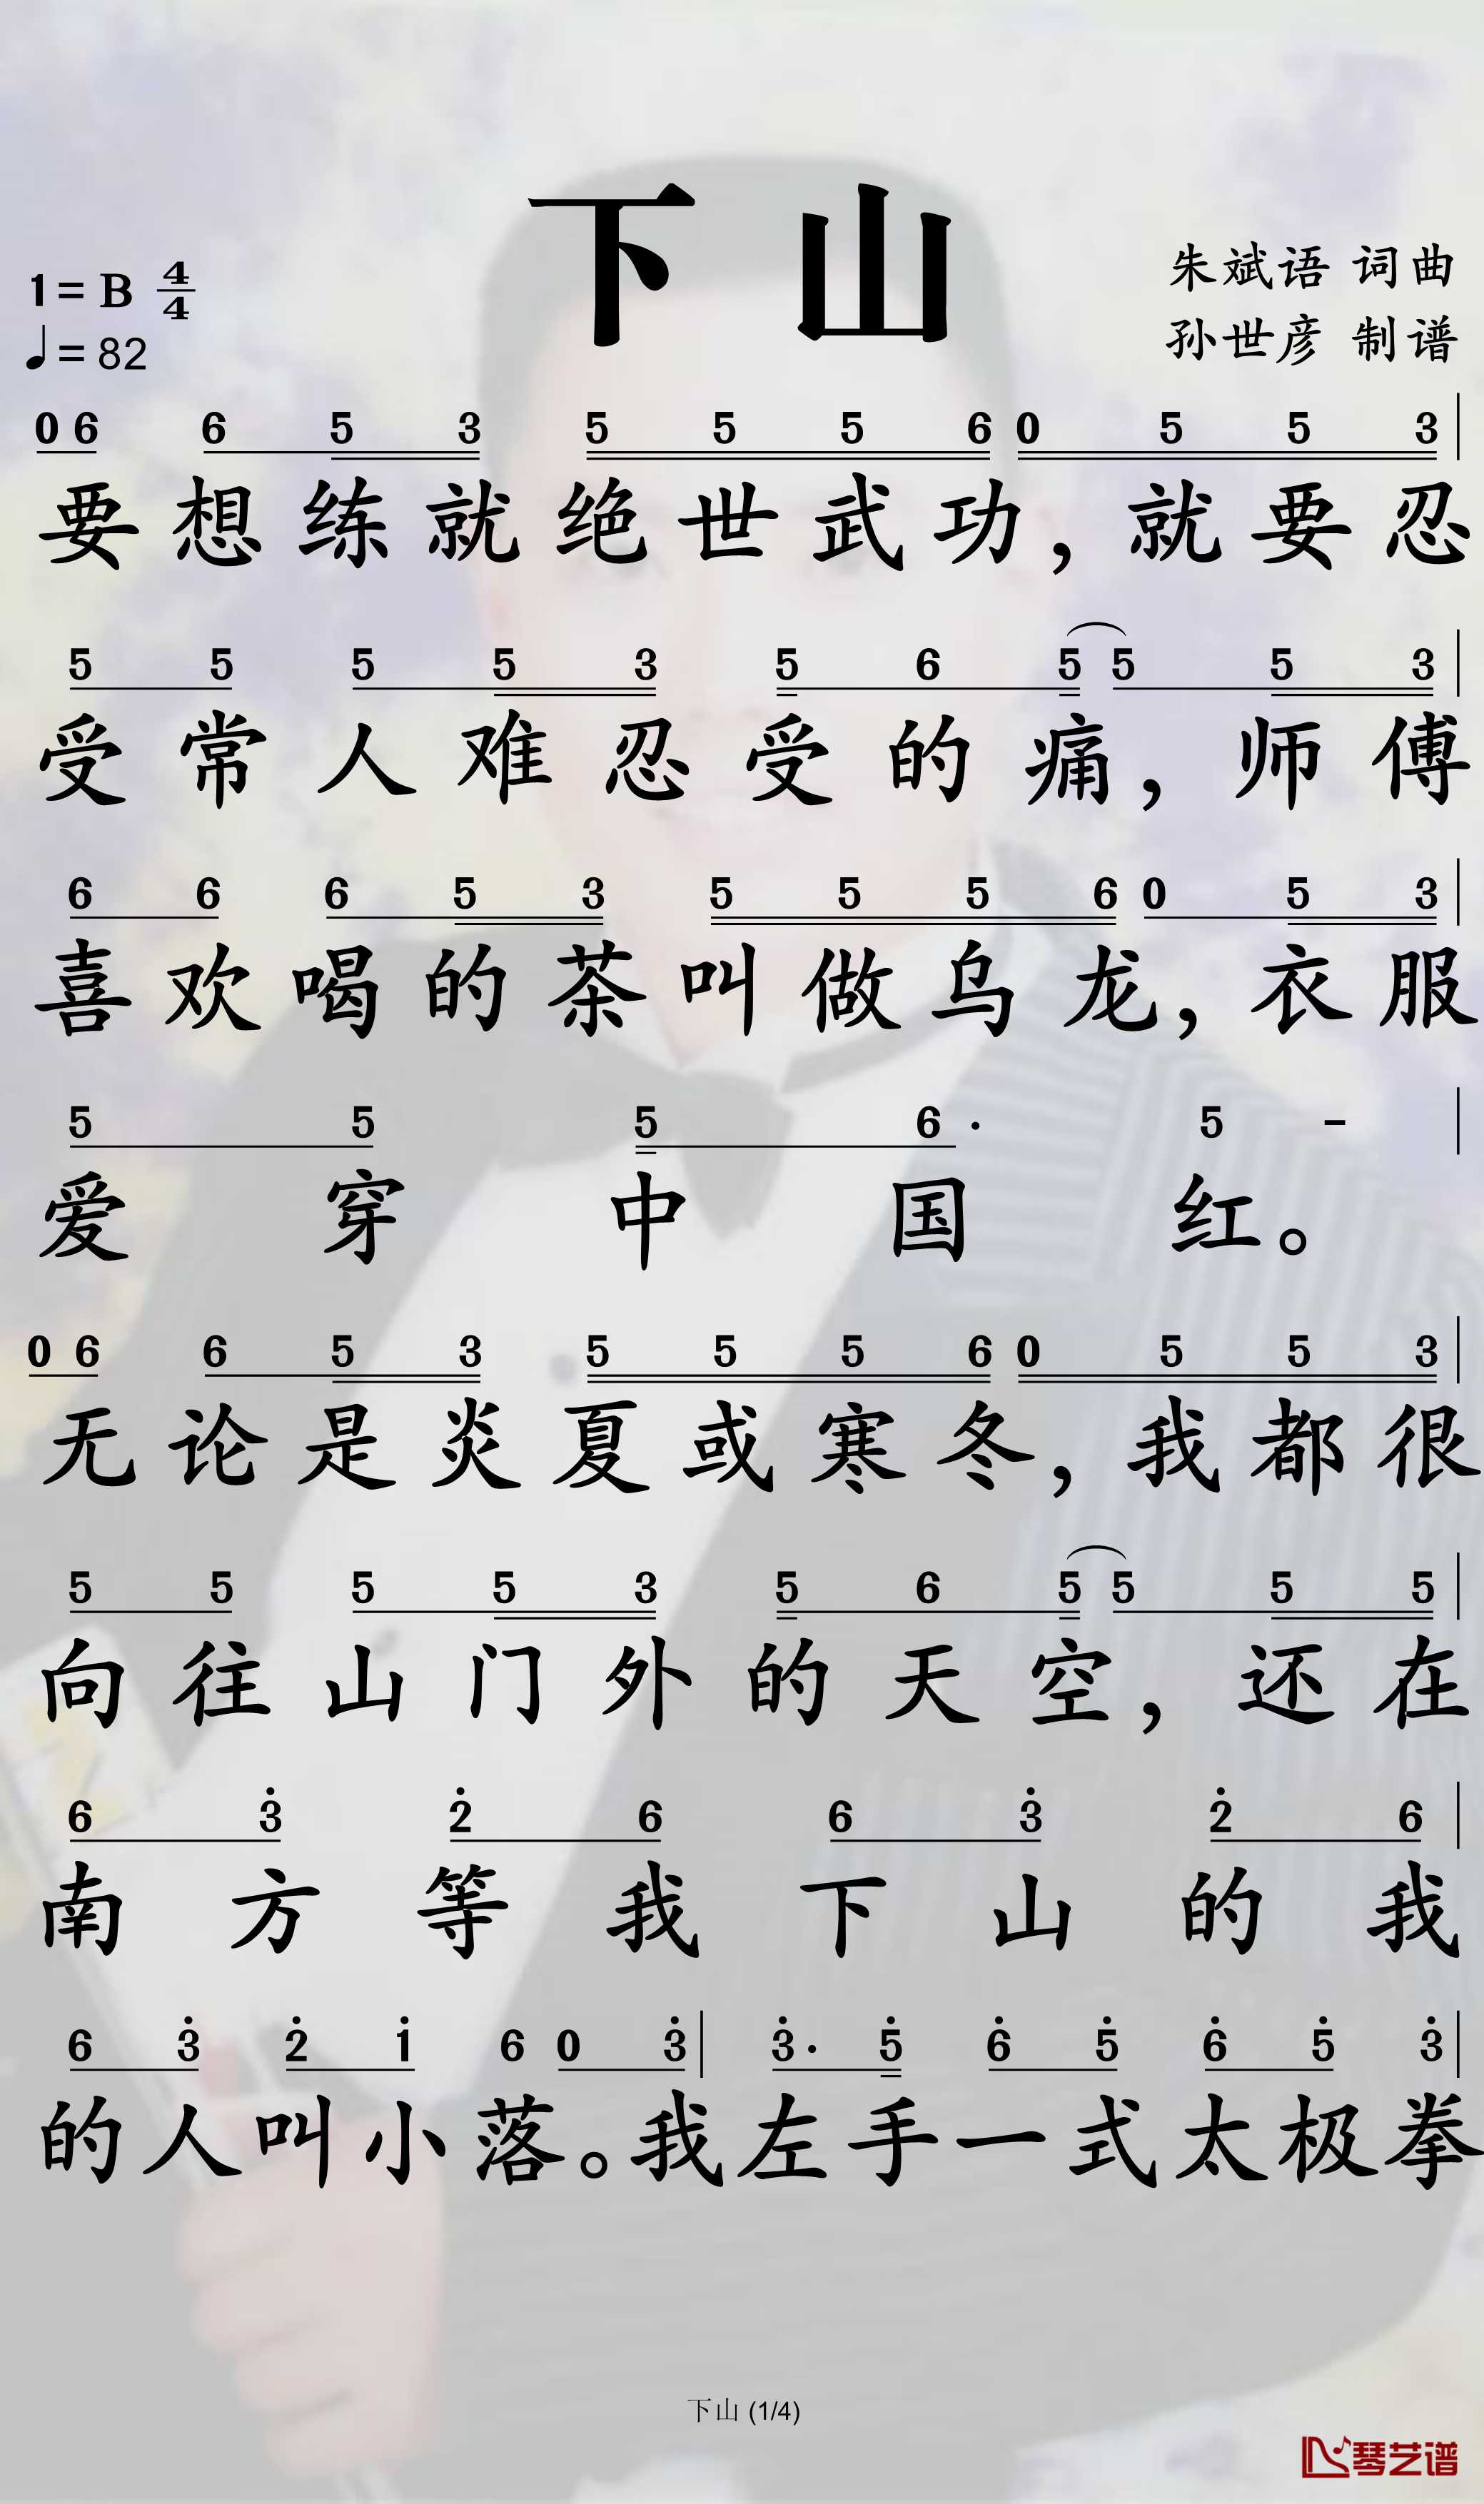 下山
1=B 4/4
♩=82
朱斌语 词曲
孙世彦 制谱
0 6 6 5 3 5 5 5 6 0 5 5 3 |
要想练就绝世武功，就要忍
5 5 5 5 3 5 6 5 5 5 3 |
受常人难忍受的痛，师傅
6 6 6 5 3 5 5 5 6 0 5 3 |
喜欢喝的茶叫做乌龙，衣服
5 5 5 6· 5 - |
爱穿中国红。
0 6 6 5 3 5 5 5 6 0 5 5 3 |
无论是炎夏或寒冬，我都很
5 5 5 5 3 5 6 5 5 5 5 |
向往山门外的天空，还在
6 3̇ 2̇ 6 6 3̇ 2̇ 6 |
南方等我下山的我
6 3̇ 2̇ 1̇ 6 0 3̇ | 3̇· 5̇ 6̇ 5̇ 6̇ 5̇ 3̇ |
的人叫小落。我左手一式太极拳
下山 (1/4)
琴艺谱